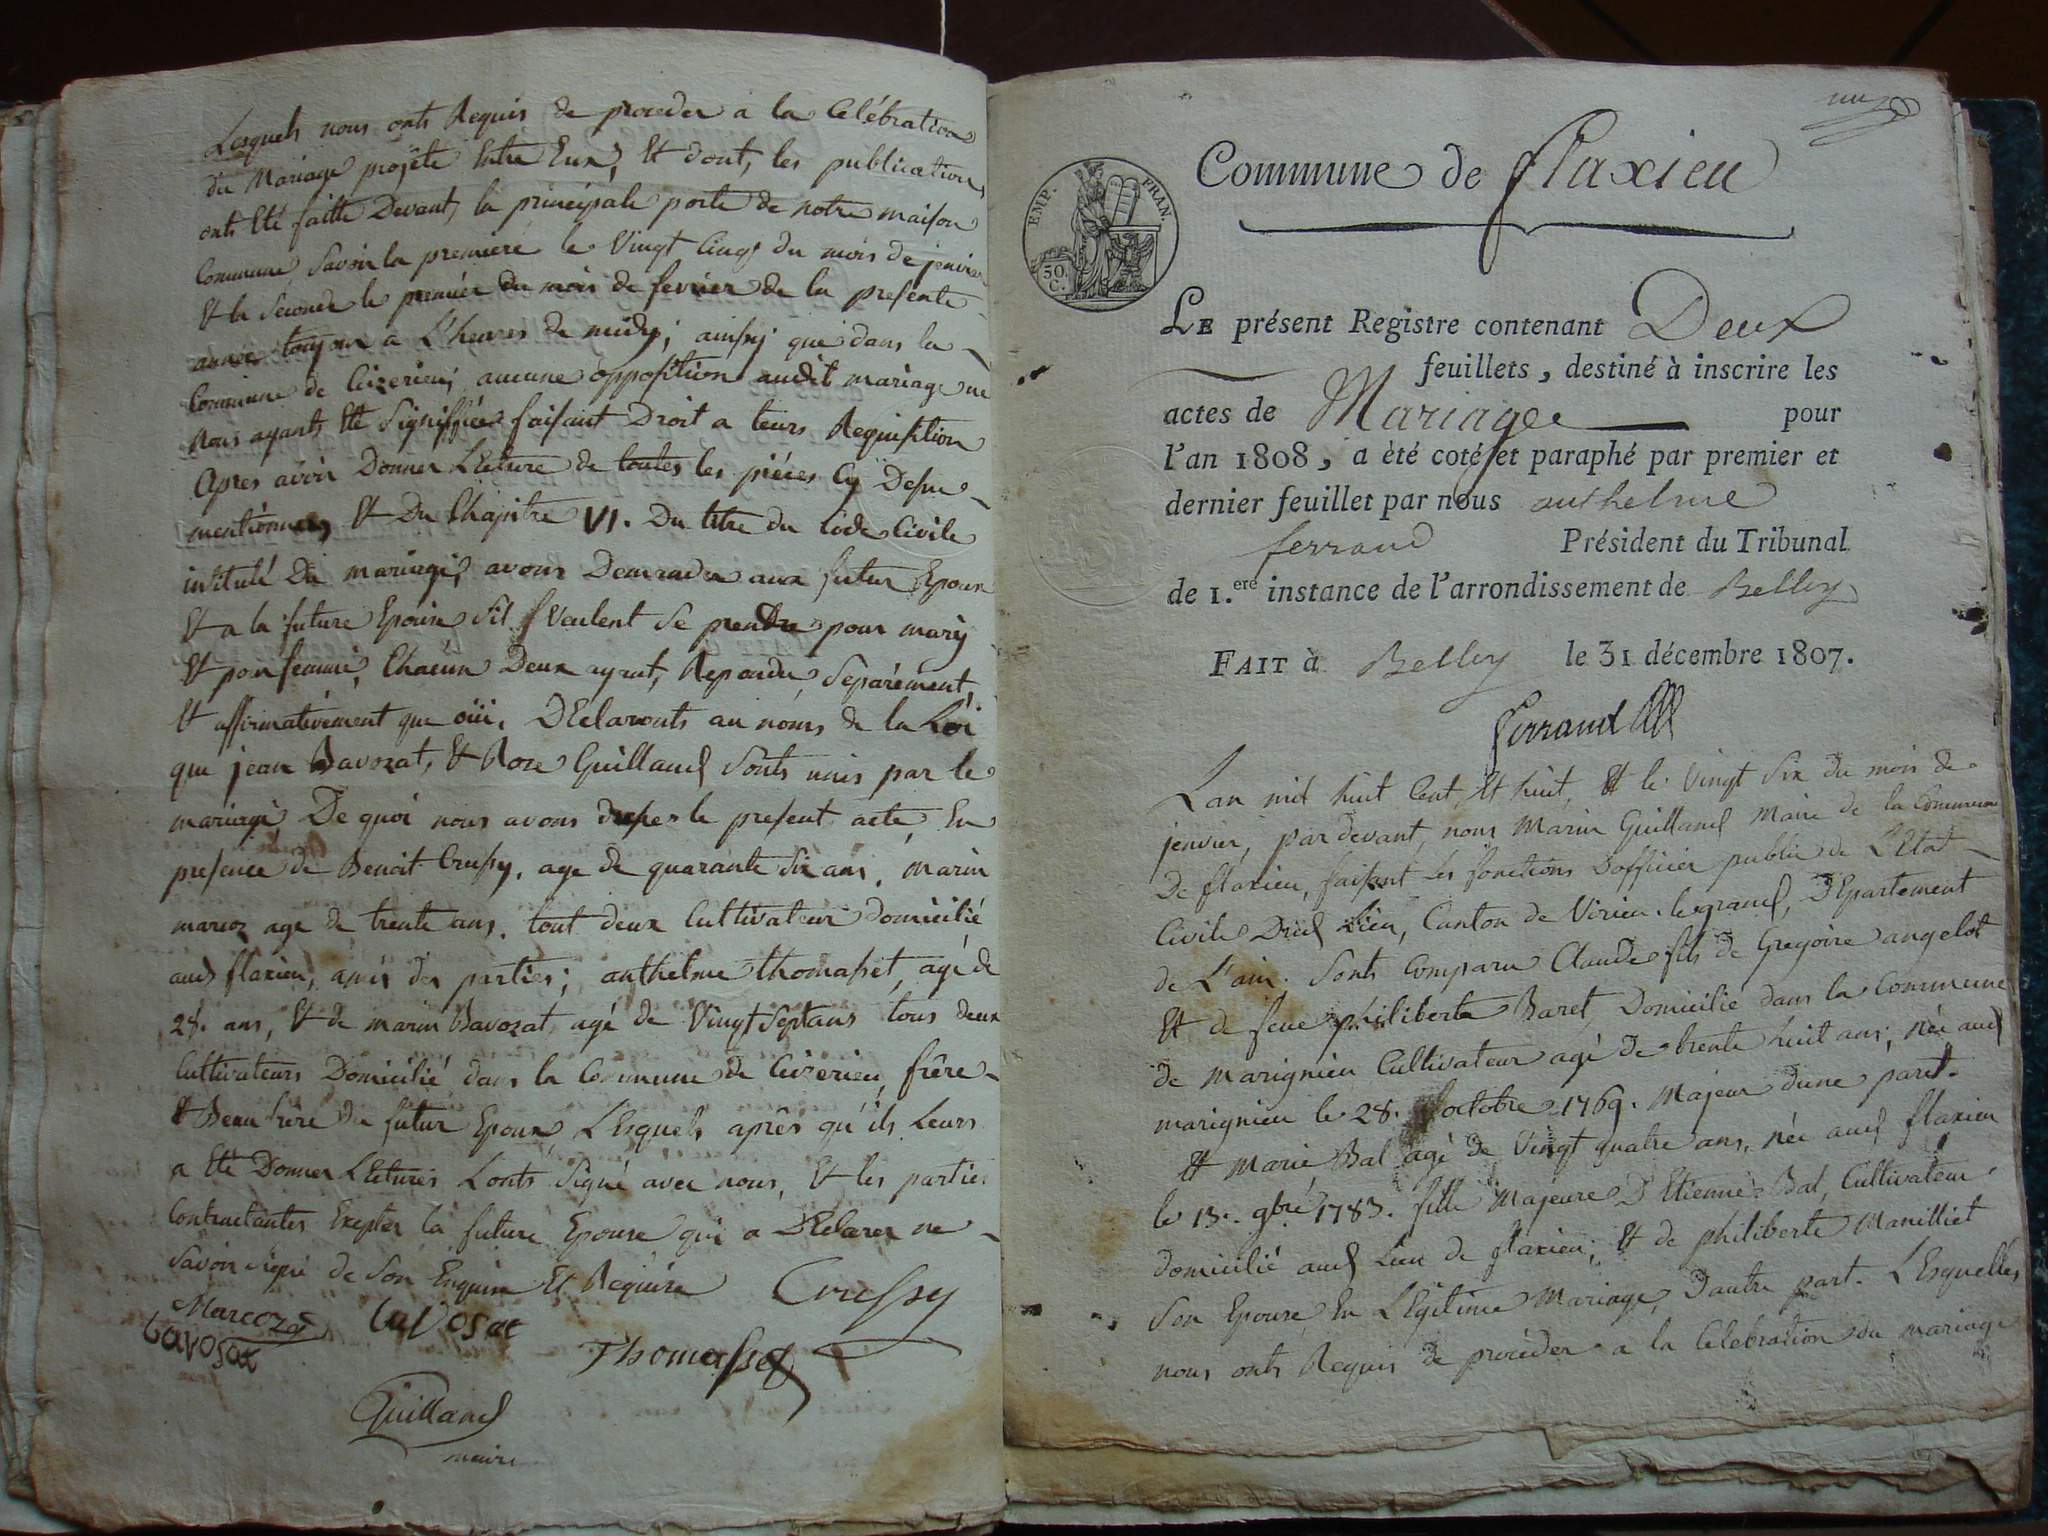 Lesquels nous onts Requis de proceder a la Celébration
du Mariage projété Entre Eux, Et dont, les publications
onts Eté faitte Devant, la principale porte de notre maison
Commune Savoir la premiere le Vingt Cinq du mois de jenvier
Et la Seconde le premier du mois de fevrier de la presente
année toujour a L'heures de midy; ainsy que dans la
Commune de Cizerieu; aucune opposition audit mariage ne
Nous ayants Eté Signiffiée faisant Droit a leurs Requisition
Apres avoir Donner LEcture de toutes les piéces Cy Desu
mentionnes, Et Du Chapitre VI. Du titre du Code Civile
intitulé Du mariage, avons Demander aux futur Epoux
Et a la future Epouse Sil Veulent Se prendre pour mary
Et pour femme, Chacun Deux ayant, Repondu, Séparement,
Et affirmativement que oüi, DEclaronts au noms de la Loi
que jean Bavozat, Et Rose Guilland Sonts unis par le
mariage, De quoi nous avons dresser le present acte, En
presence de Benoit Crussy, age de quarante Six ans, marin
marcoz age de trente ans, tout deux Cultivateur domicilié
aud flaxieu, amis des parties; anthelme thomasset, agé de
28. ans, Et de marin Bavozat, agé de Vingt Sept ans tous deux
Cultivateurs Domicilié dans la Commune de Cizerieu, frère
Et Beau frère du futur Epoux, LEsquels après qu'ils Leurs
a Eté Donner LEctures Lonts Signé avec nous, Et les parties
Contractantes Exepter la future Epouse qui a DEclarer ne
Savoir Signé de Son Enquise Et Requise
Crussy
Marcoz
bavosat
bavosat
Thomasset
Guilland
maire
Commune de flaxieu
EMP. FRAN.
50. C.
LE présent Registre contenant Deux
feuillets, destiné à inscrire les
actes de Mariage pour
l'an 1808, a été coté et paraphé par premier et
dernier feuillet par nous anthelme
ferrand Président du Tribunal
de 1.ere instance de l'arrondissement de Belley
FAIT à Belley le 31 décembre 1807.
ferrand
Lan mil huit Cent, Et huit, Et le Vingt Six du mois de
jenvier, par devant, nous Marin Guilland Maire de la Commune
De flaxieu, faisant les fonctions Dofficier public de L'Etat
Civile Dud Lieu, Canton de Virieu le grand, DEpartement
de L'ain. Sonts Comparu Claude fils de Gregoire angelot
Et de feue philiberte Baret, Domicilie dans la Commune
de Marignieu Cultivateur agé de trente huit ans; née aud
marignieu le 28. octobre 1769. Majeur dune part.
Et Marie Bal agé de Vingt quatre ans, née aud flaxieu
le 13. 9bre 1783. fille Majeure D'Etienne Bal, Cultivateur
domicilié aud Lieu de flaxieu; Et de philiberte Manilliet
Son Epouse En LEgitime Mariage, Dautre part. LEsquelles
nous onts Requis de proceder a la Celebration du mariage